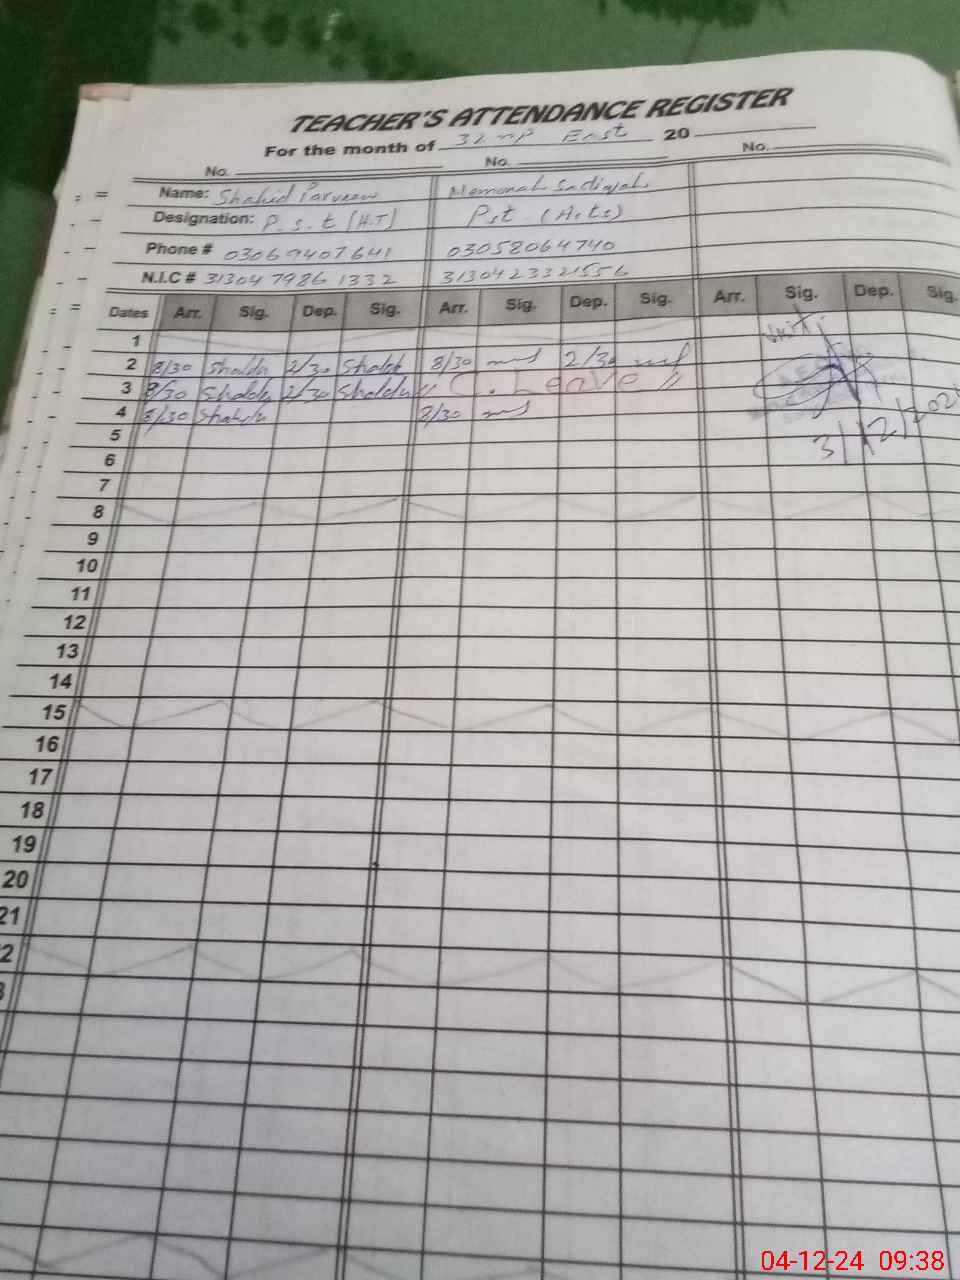 TEACHER'S ATTENDANCE REGISTER
For the month of 32 NP East 20
No. No. No.
Name: Shahid Parveen Memonah Sadiqah
Designation: P.S.t (H.T) Pst (Arts)
Phone # 03069407641 03058064740
N.I.C # 3130479861332 3130423321556
Dates Arr. Sig. Dep. Sig. Arr. Sig. Dep. Sig. Arr. Sig. Dep. Sig.
1
2 8/30 2/30 8/30 2/30
3 8/30 2/30 " C. Leave "
4 8/30 8/30
3/12/202
5
6
7
8
9
10
11
12
13
14
15
16
17
18
19
20
21
2
3
04-12-24 09:38